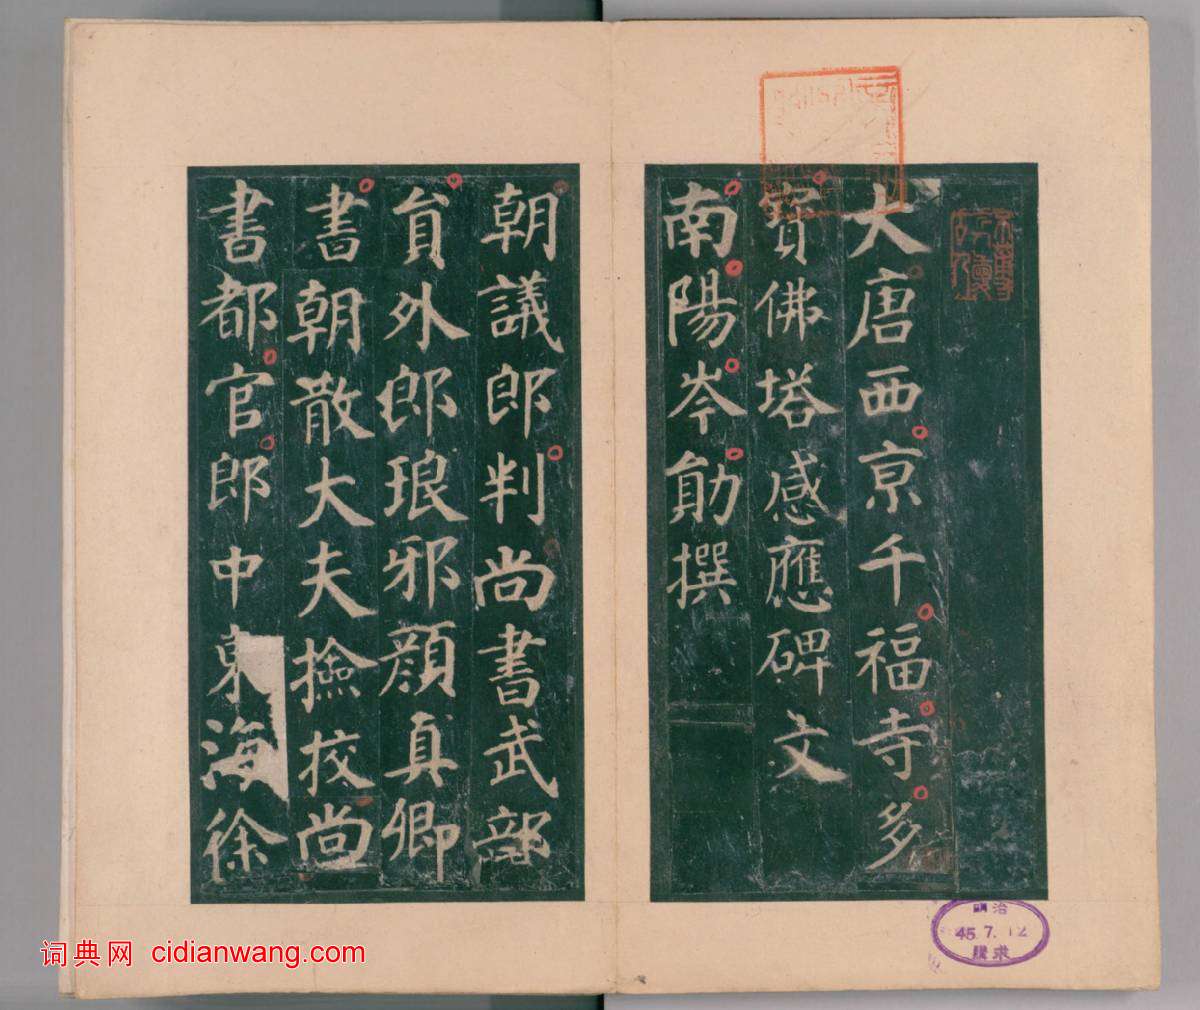 大唐西京千福寺多
寶佛塔感應碑文
南陽岑勛撰
朝議郎判尚書武部
貟外郎琅邪顏真卿
書朝散大夫撿挍尚
書都官郎中東海徐
明治
45.7.12
購求
词典网 cidianwang.com